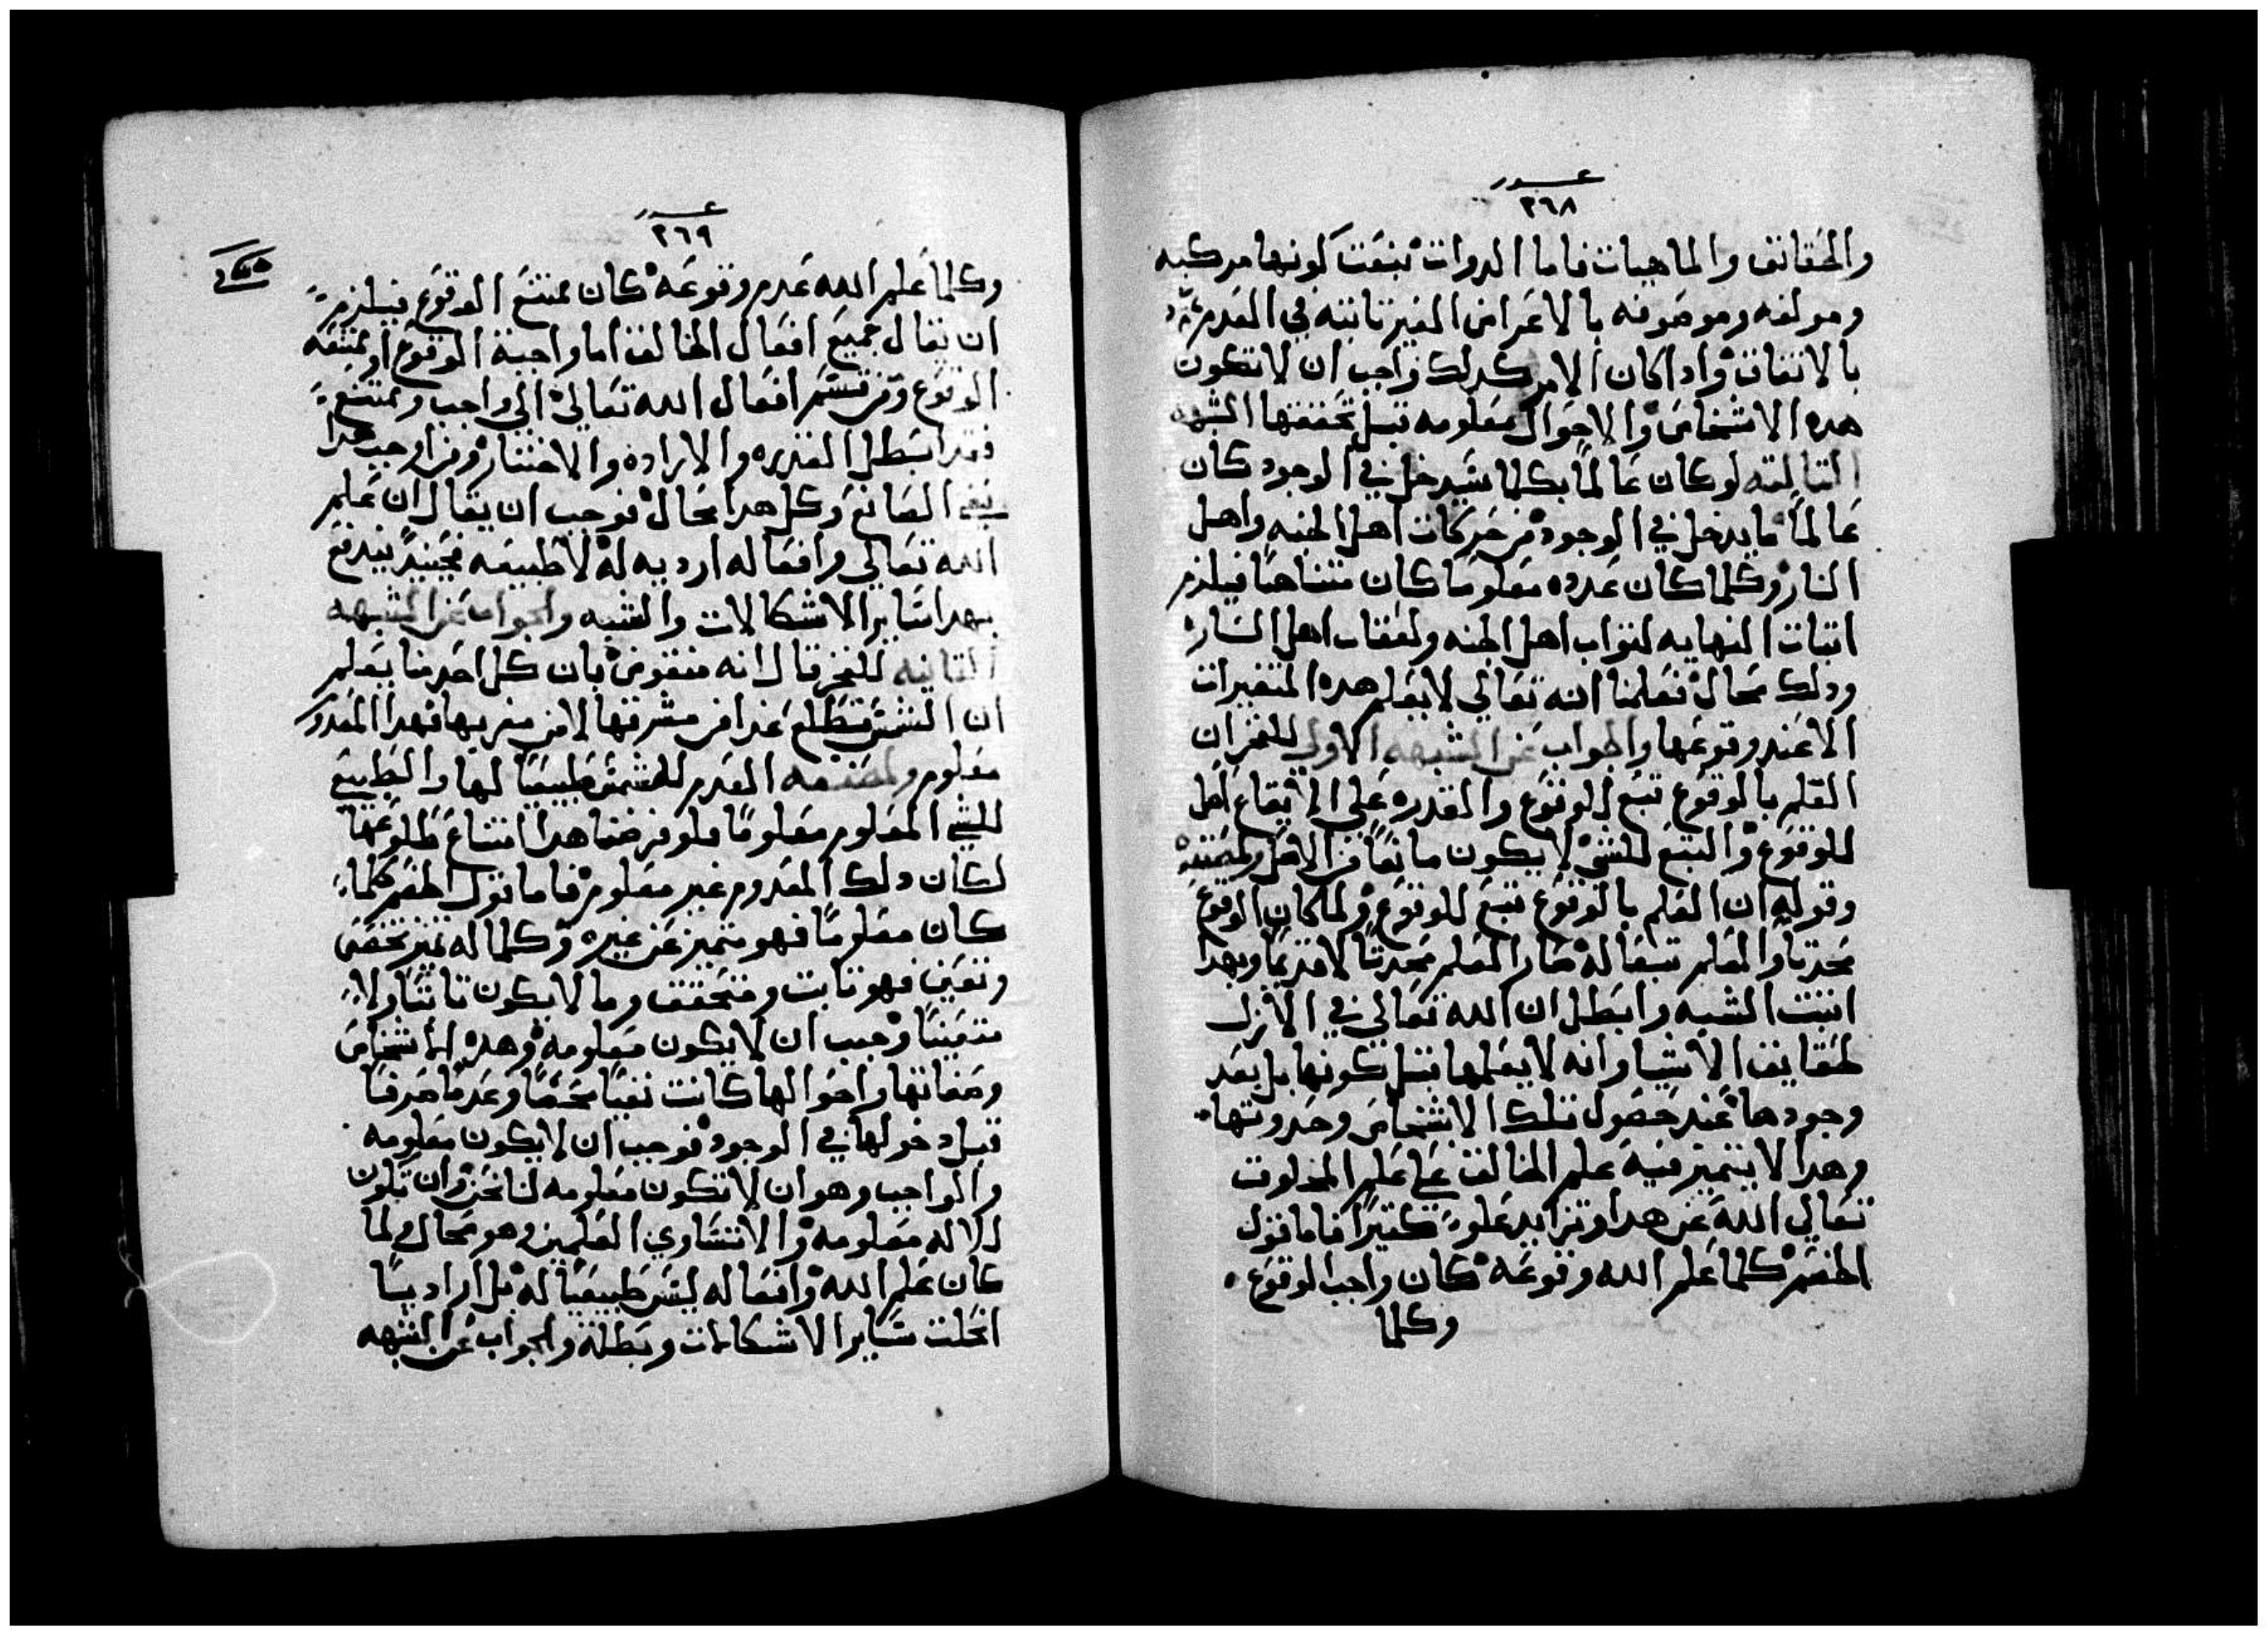 عدد
٢٦٨
والحقائق والماهيات فاما الدوات نبغت كونها مركبه
ومولفه وموصوفه بالاعراض الغير تابته في العدم
بالاتفاق وادا كان الامر كدلك واجب ان لا تكون
هده الاشخاص والاحوال معلومه قبل تحققها الشبهه
التالته لو كان عالماً بكلما سيدخل في الوجود كان
عالماً ما يدخل في الوجود من حركات اهل الجنه واهل
النار وكلما كان عدده معلوماً كان متناهياً فيلزم
اتبات النهايه لتواب اهل الجنه ولعقاب اهل النار
ودلك محال فعلمنا انه تعالي لا يعلم هده المتغيرات
الا عند وقوعها والجواب عن الشبهه الاولي للفخر ان
العلم بالوقوع تبع الوقوع والقدره علي الايقاع اصل
للوقوع والتبع للشي لا يكون مانعاً من الاصل
وقوله ان العلم بالوقوع تبع للوقوع ولما كان الوقوع
محدتاً والعلم تبعاً له صار العلم محدتاً لا قديماً وبهدا
اتبت الشبه وابطل ان الله تعالي في الازل
لحقايق الاشيا وانه لا يعلمها قبل كونها بل بعد
وجودها عند حصول تلك الاشخاص وحدوتها
وهدا لا يتميز فيه علم الخالق علي علم المخلوق
تعالي الله عن هدا وتزايد علوه كتيراً فاما قول
الخصم كلما علم الله وقوعه كان واجب الوقوع
وكلما
عدد
٢٦٩
وكلما علم الله عدم وقوعه كان ممتنع الوقوع فيلزم
ان يقال جميع افعال الخالق اما واجبة الوقوع او ممتنعه
الوقوع ومن قسم افعال الله تعالي الي واجب وممتنع
فقد ابطل القدره والاراده والاختيار ومن اوجب هدا
نفي الصانع وكل هدا محال فوجب ان يقال ان علم
الله تعالي وافعاله اراديه له لا طبيعه فحينيدٍ يندفع
بهدا ساير الاشكالات والشبه والجواب عن الشبهه
التانيه للفخر قال انه منقوض بان كل احد منا يعلم
ان الشمس تطلع غدا من مشرقها لا من مغربها فهدا المعدوم
معلوم العدم للشمس طبيعياً لها والطبيعي
للشي المعلوم معلوماً فلو فرضنا هدا امتناع طلوعها
لكان دلك المعدوم غير معلوم فاما قول الخصم كلما
كان معلوماً فهو متميز عن غيره وكلما له تميز تخصص
وتعين فهو تابت ومتحقق وما لا يكون تابتاً ولا
متعيناً وجب ان لا يكون معلومه وهده الاشخاص
وصفاتها واحوالها كانت نفياً محضاً وعدماً صرفاً
قبل دخولها في الوجود فوجب ان لا يكون معلومه
والواجب وهو ان لا تكون معلومه لنا نحن وان تكون
للاله معلومه والا تتساوي العلمين وهو محال ولما
كان علم الله وافعاله ليس طبيعياً له بل ارادياً
انحلت ساير الاشكالات وبطلة والجواب عن الشبهه